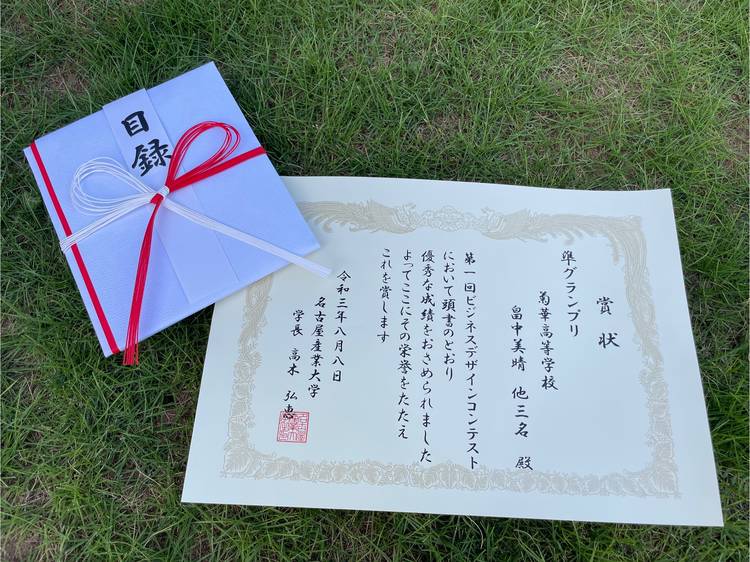 目録
賞状
準グランプリ
菊華高等学校
畠中美晴 他三名 殿
第一回ビジネスデザインコンテスト
において頭書のとおり
優秀な成績をおさめられました
よってここにその栄誉をたたえ
これを賞します
令和三年八月八日
名古屋産業大学
学長 高木弘恵